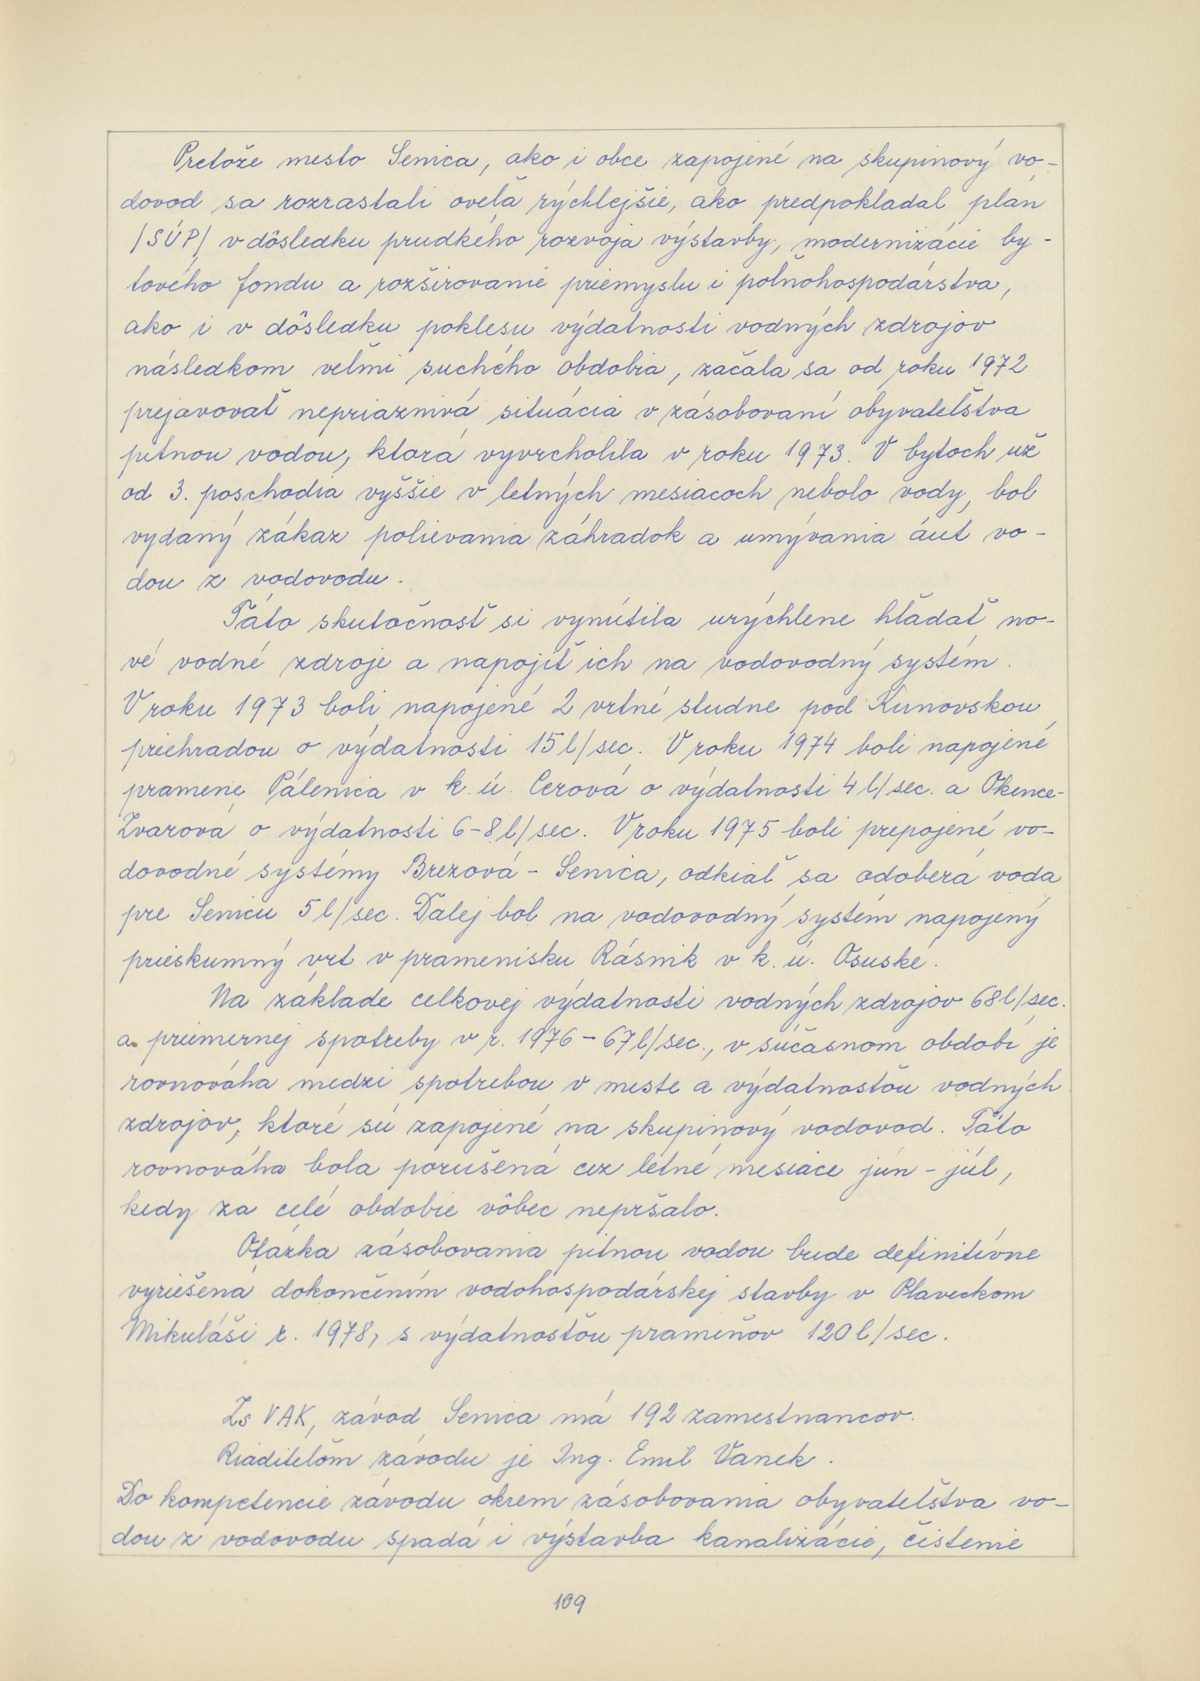 Pretože mesto Senica, ako i obce zapojené na skupinový vo-
dovod sa rozrastali oveľa rýchlejšie, ako predpokladal plán
/SÚP/ v dôsledku prudkého rozvoja výstavby, modernizácie by-
tového fondu a rozširovanie priemyslu i poľnohospodárstva,
ako i v dôsledku poklesu výdatnosti vodných zdrojov
následkom veľmi suchého obdobia, začala sa od roku 1972
prejavovať nepriaznivá situácia v zásobovaní obyvateľstva
pitnou vodou, ktorá vyvrcholila v roku 1973. V bytoch už
od 3. poschodia vyššie v letných mesiacoch nebolo vody, bol
vydaný zákaz polievania záhradok a umývania áut vo-
dou z vodovodu.
Táto skutočnosť si vynútila urýchlene hľadať no-
vé vodné zdroje a napojiť ich na vodovodný systém.
V roku 1973 boli napojené 2 vrtné studne pod Kunovskou
priehradou o výdatnosti 15 l/sec. V roku 1974 boli napojené
pramene Pálenica v k. ú. Cerová o výdatnosti 4 l/sec. a Okence-
Zvarová o výdatnosti 6-8 l/sec. V roku 1975 boli prepojené vo-
dovodné systémy Brezová - Senica, odkiaľ sa odoberá voda
pre Senicu 5 l/sec. Ďalej bol na vodovodný systém napojený
prieskumný vrt v pramenisku Rásnik v k. ú. Osuské.
Na základe celkovej výdatnosti vodných zdrojov 68 l/sec.
a priemernej spotreby v r. 1976 - 67 l/sec., v súčasnom období je
rovnováha medzi spotrebou v meste a výdatnosťou vodných
zdrojov, ktoré sú zapojené na skupinový vodovod. Táto
rovnováha bola porušená cez letné mesiace jún - júl,
kedy za celé obdobie vôbec nepršalo.
Otázka zásobovania pitnou vodou bude definitívne
vyriešená dokončením vodohospodárskej stavby v Plaveckom
Mikuláši r. 1978, s výdatnosťou prameňov 120 l/sec.
Zs VAK, závod Senica má 192 zamestnancov.
Riaditeľom závodu je Ing. Emil Vanek.
Do kompetencie závodu okrem zásobovania obyvateľstva vo-
dou z vodovodu spadá i výstavba kanalizácie, čistenie
109